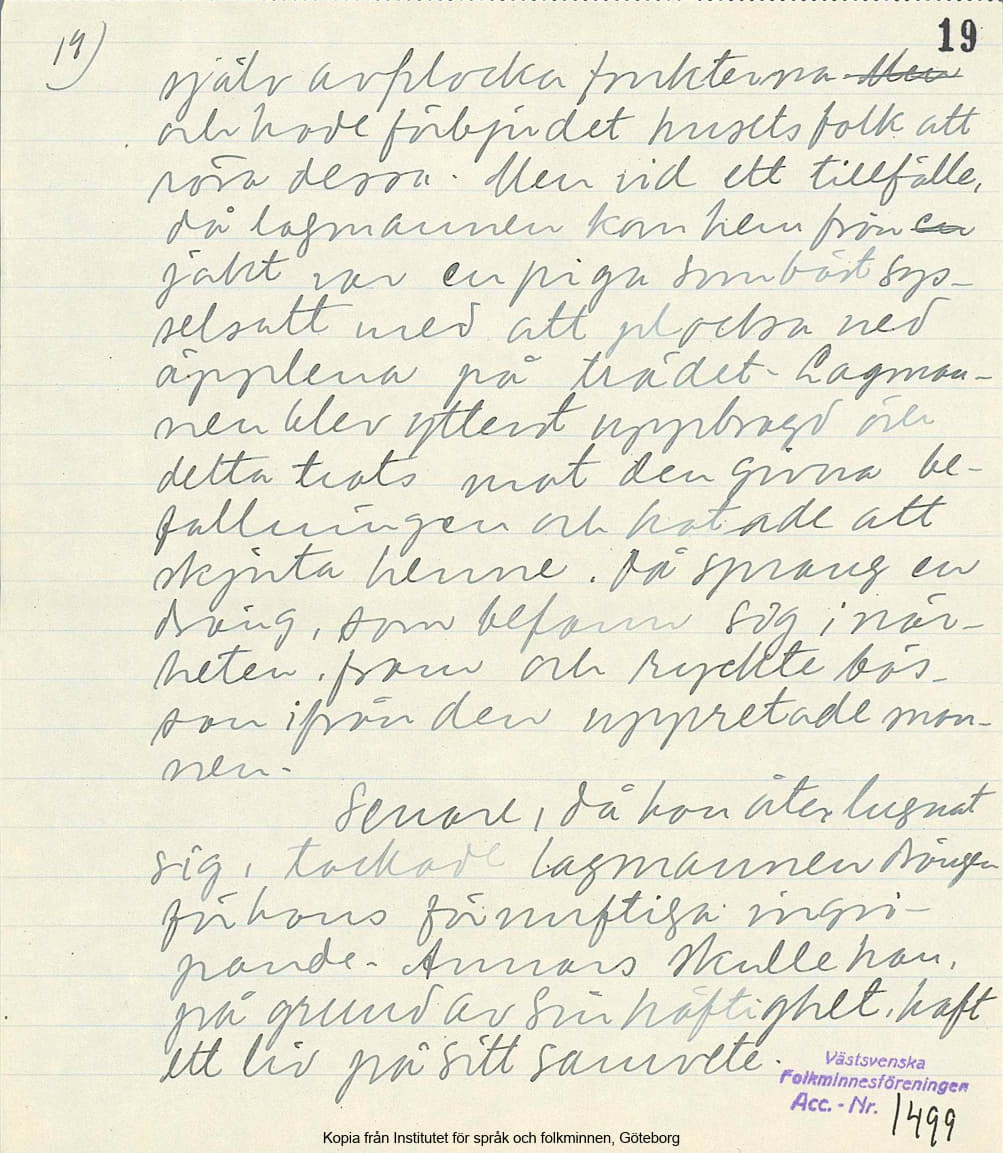 19)
19
själv avplocka frukterna. Men
och hade förbjudet husets folk att
röra dessa. Men vid ett tillfälle,
då lagmannen kom hem från en
jakt var en piga som bäst sys-
selsatt med att plocka ned
äpplena på trädet. Lagman-
nen blev ytterst uppbragd över
detta trots mot den givna be-
fallningen och hotade att
skjuta henne. Då sprang en
dräng, som befann sig i när-
heten, fram och ryckte bös-
san ifrån den uppretade man-
nen.
Senare, då han åter lugnat
sig, tackade lagmannen drängen
för hans förnuftiga ingri-
pande. Annars skulle han,
på grund av sin häftighet, haft
ett liv på sitt samvete.
Västsvenska
Folkminnesföreningen
Acc. - Nr. 1499
Kopia från Institutet för språk och folkminnen, Göteborg